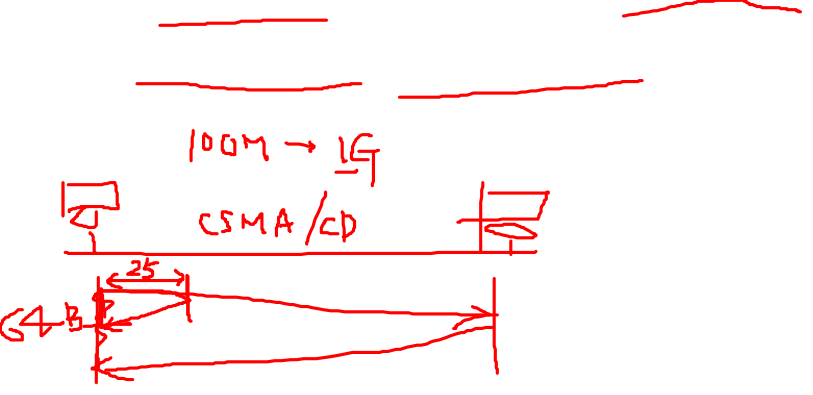 100M → 1G
CSMA/CD
25
64 B